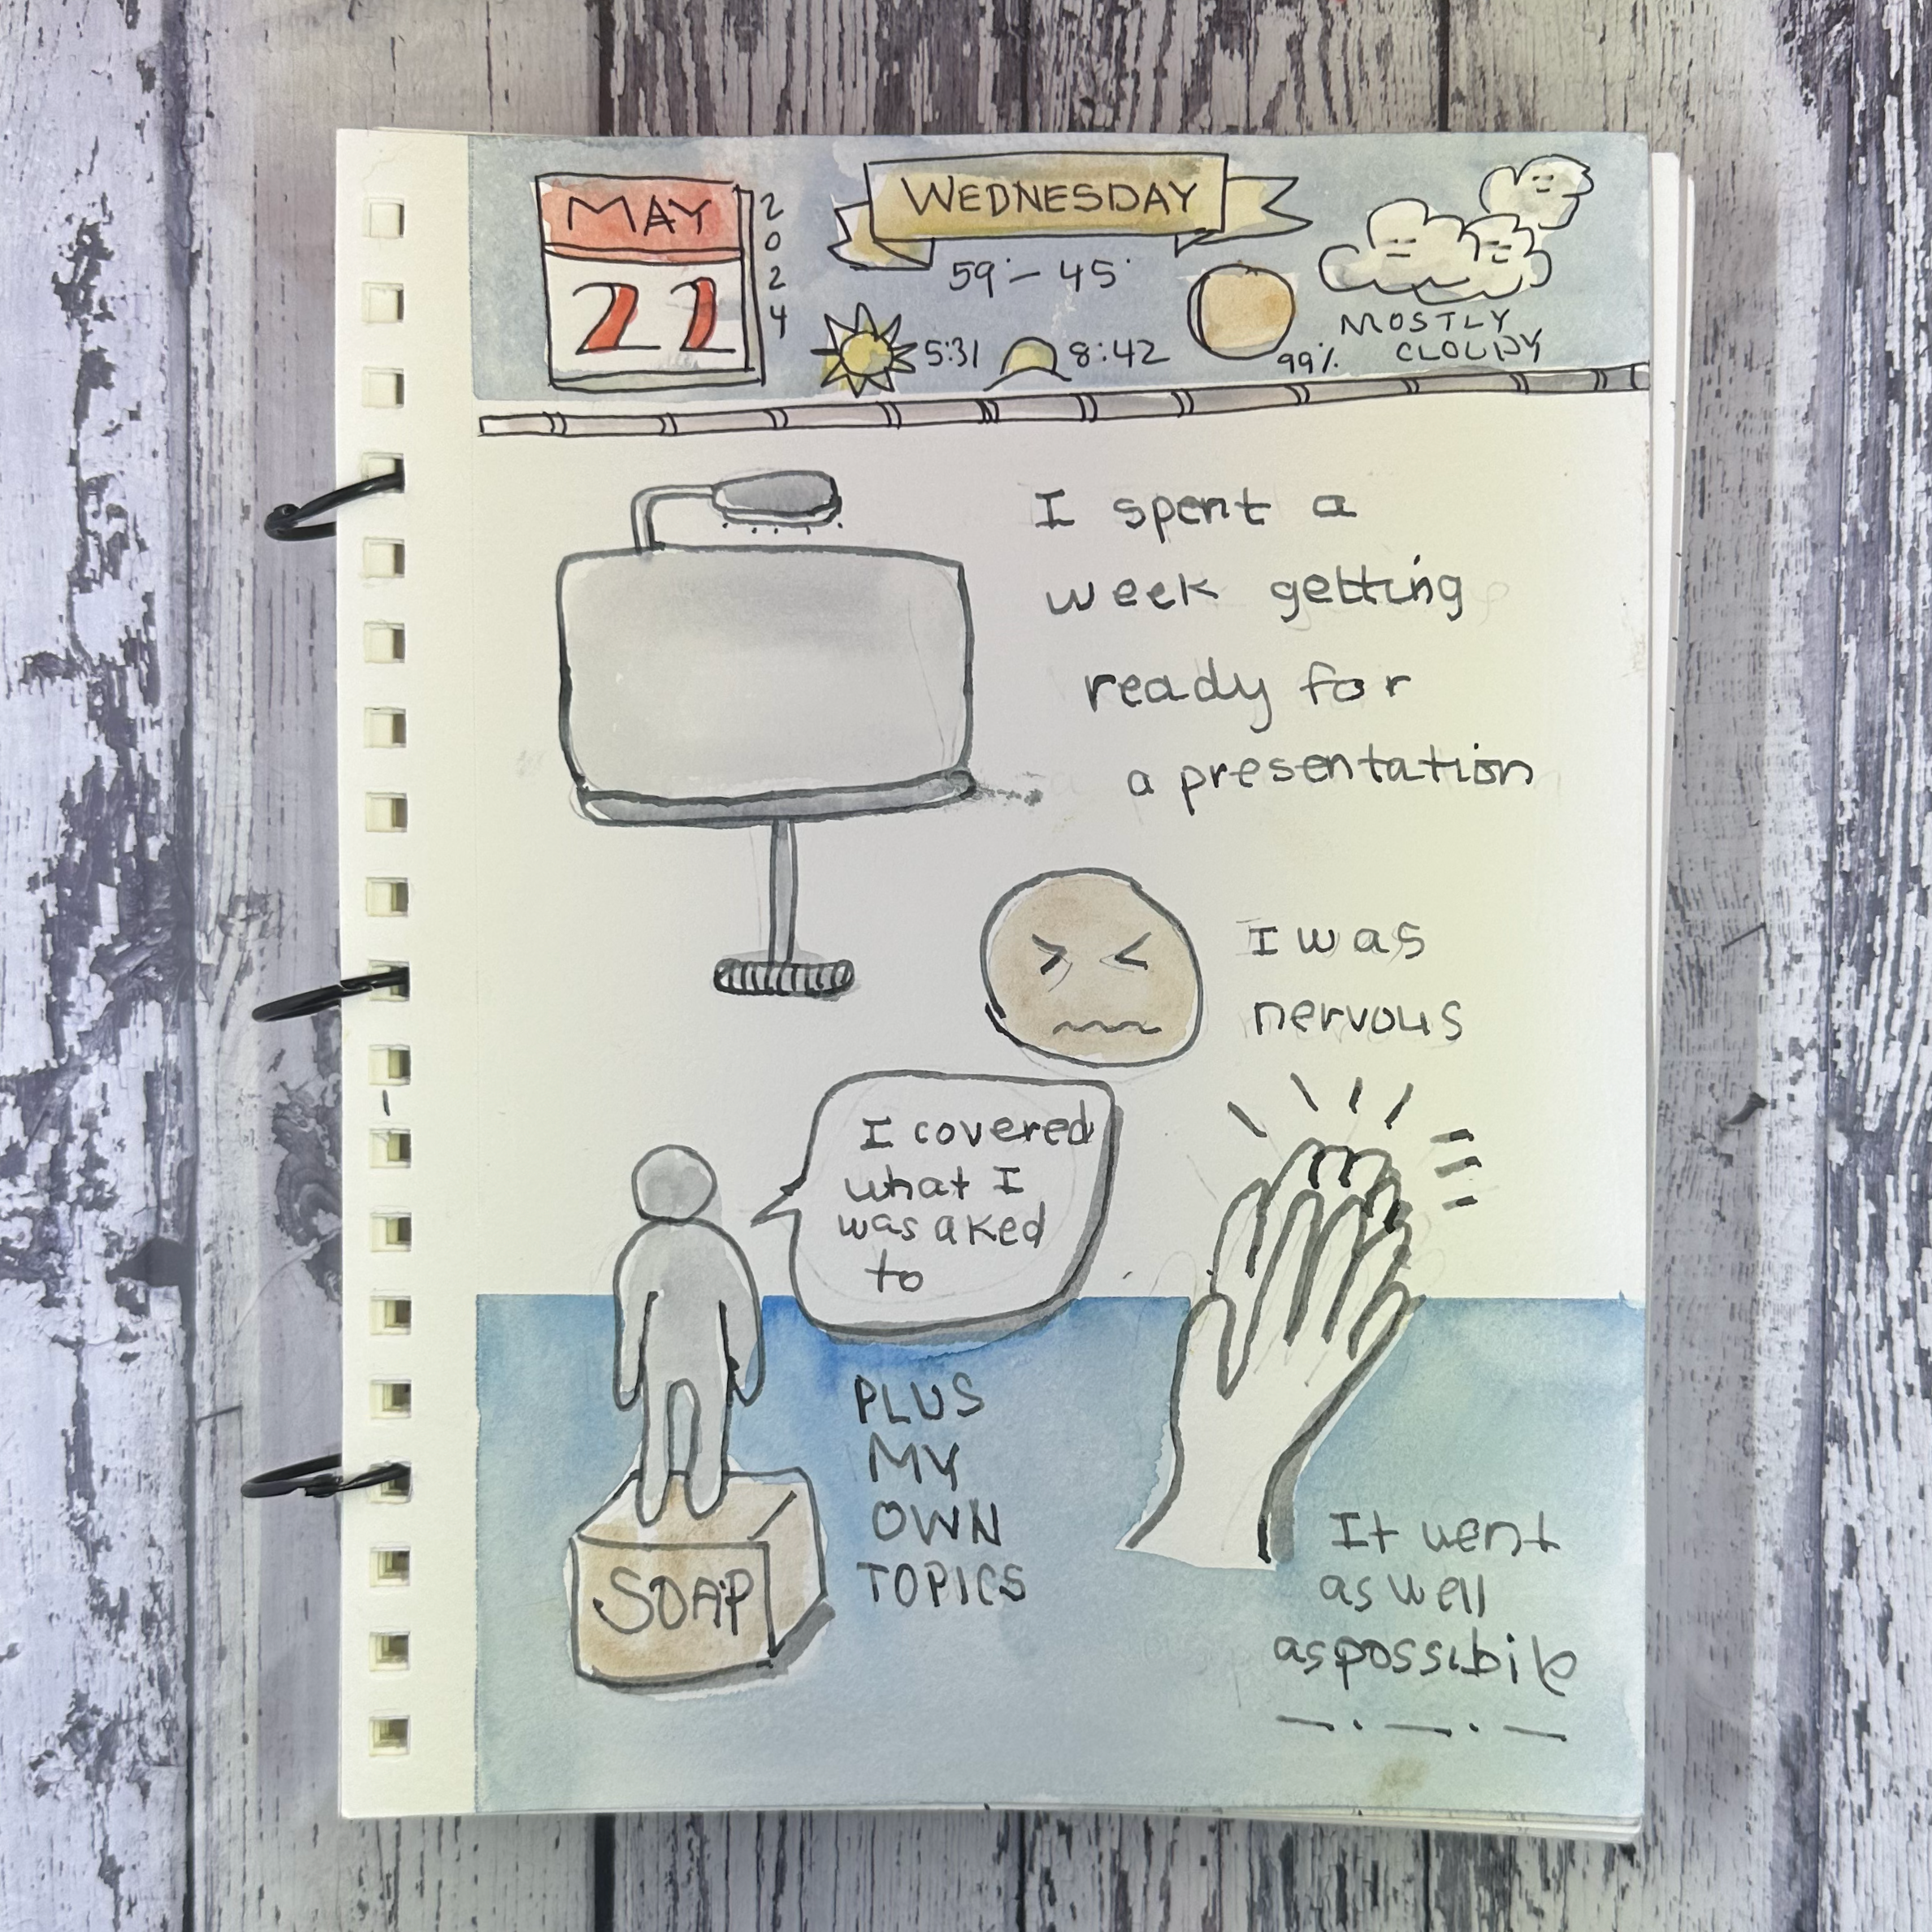 MAY
2024
22
WEDNESDAY
59° – 45°
5:31
8:42
99%
MOSTLY
CLOUDY
I spent a
week getting
ready for
a presentation
I was
nervous
I covered
what I
was aked
to
PLUS
MY
OWN
TOPICS
SOAP
It went
as well
as possibile